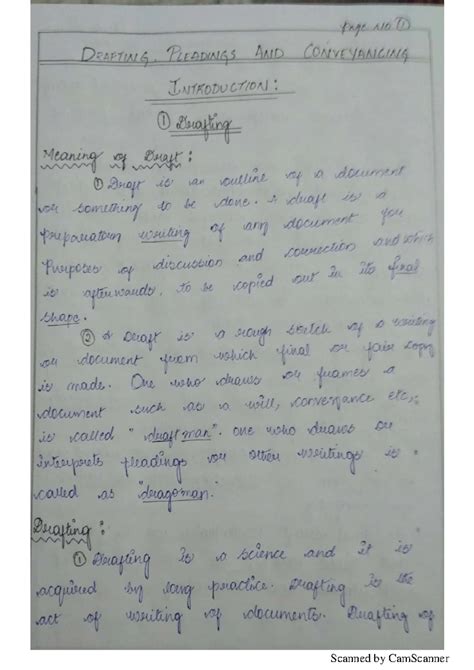 Page No ①
DRAFTING, PLEADINGS AND CONVEYANCING
INTRODUCTION:
① Drafting
Meaning of Draft:
① Draft is an outline of a document
or something to be done. A draft is a
preparatory writing of any document for
purposes of discussion and correction and which
is afterwards, to be copied out in its final
shape.
② A Draft is a rough sketch of a writing
or document from which final or fair copy
is made. One who draws or frames a
document such as a will, conveyance etc,
is called "draftman". One who draws or
interprets pleadings or other writings is
called as "dragoman".
Drafting:
① Drafting is a science and it is
acquired by long practice. Drafting is the
act of writing of documents. Drafting of
Scanned by CamScanner